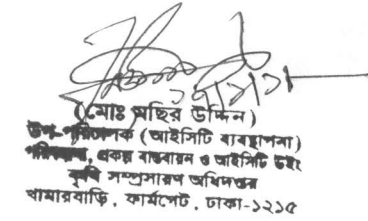 (মোঃ মছির উদ্দিন)
উপ-পরিচালক (আইসিটি ব্যবস্থাপনা)
পরিকল্পনা, প্রকল্প বাস্তবায়ন ও আইসিটি উইং
কৃষি সম্প্রসারণ অধিদপ্তর
খামারবাড়ি, ফার্মগেট, ঢাকা-১২১৫